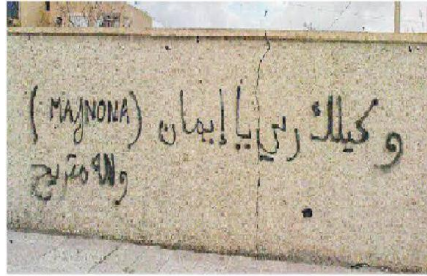 وكيلك ربي يا إيمان (MAJNONA)
والله متربح